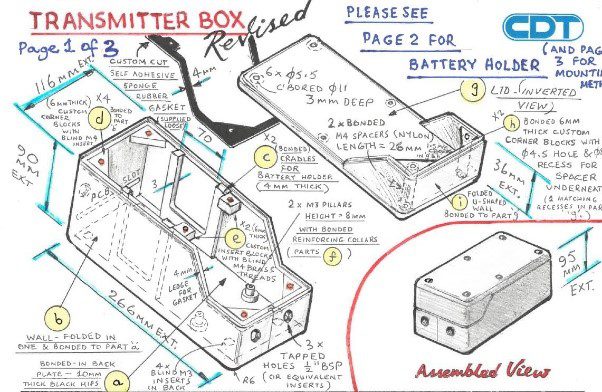 TRANSMITTER BOX
Revised
Page 1 of 3
PLEASE SEE
PAGE 2 FOR
BATTERY HOLDER
CDT
(AND PAG
3 FOR
MOUNTI
METH
116MM EXT.
CUSTOM CUT
SELF ADHESIVE
SPONGE
RUBBER
GASKET
(SUPPLIED
LOOSE)
4MM
6 x Ø5.5
C'BORED Ø11
3MM DEEP
g
LID-(INVERTED
VIEW)
(6MM THICK) X4
CUSTOM
CORNER
BLOCKS
WITH BLIND M4
INSERT
d
BONDED TO
PART
70
X2
(BONDED)
CRADLES
FOR
BATTERY HOLDER
(4MM THICK)
c
2 x BONDED
M4 SPACERS (NYLON)
LENGTH = 26MM
h
X2
BONDED 6MM
THICK CUSTOM
CORNER BLOCKS WITH
Ø4.5 HOLE &
RECESS FOR
SPACER
UNDERNEAT
(2 MATCHING
RECESSES IN PAR
36MM
EXT.
i
FOLDED
U-SHAPED
WALL
BONDED TO PART g
90
MM
EXT
SLOT
3
PCB
2 x M3 PILLARS
HEIGHT = 8MM
WITH BONDED
REINFORCING COLLARS
(PARTS f)
e
X2 (6MM THICK)
CUSTOM
INSERT BLOCKS
WITH BLIND
M4 BRASS
THREADS
4MM
LEDGE FOR
GASKET
b
WALL-FOLDED IN
ONE & BONDED TO PART 'a'
266MM EXT.
BONDED-IN BACK
PLATE-10MM
THICK BLACK HIPS
a
4 x BLIND M3
INSERTS
IN BACK
R6
3 x
TAPPED
HOLES ½" BSP
(OR EQUIVALENT
INSERTS)
95
MM
EXT.
Assembled View